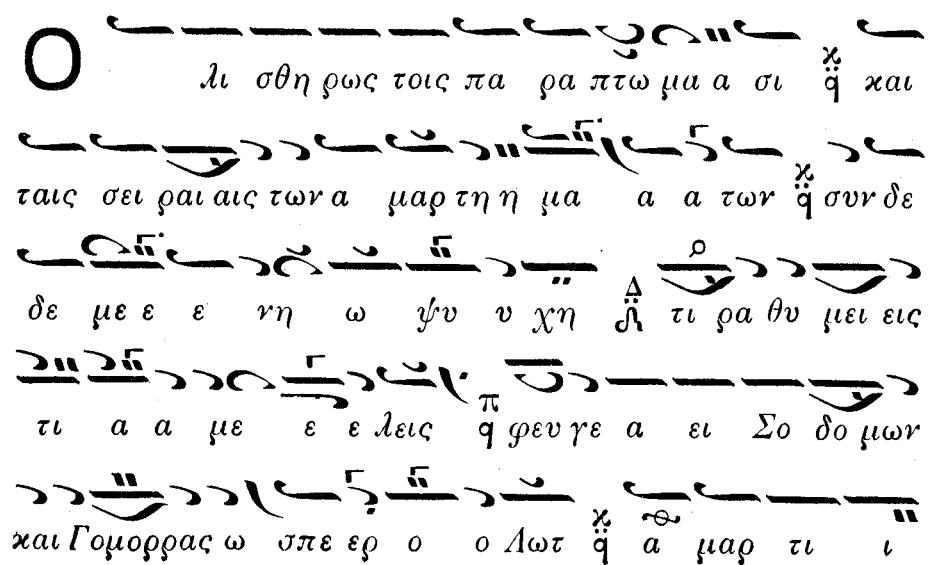 Ο λι σθη ρως τοις πα ρα πτω μα α σι ϰ q και
ταις σει ραι αις των α μαρ τη η μα α α των ϰ q συν δε
δε με ε ε νη ω ψυ υ χη Δ τι ρα θυ μει εις
τι α α με ε ε λεις π q φευ γε α ει Σο δο μων
και Γομορρας ω σπε ερ ο ο Λωτ ϰ q α μαρ τι ι